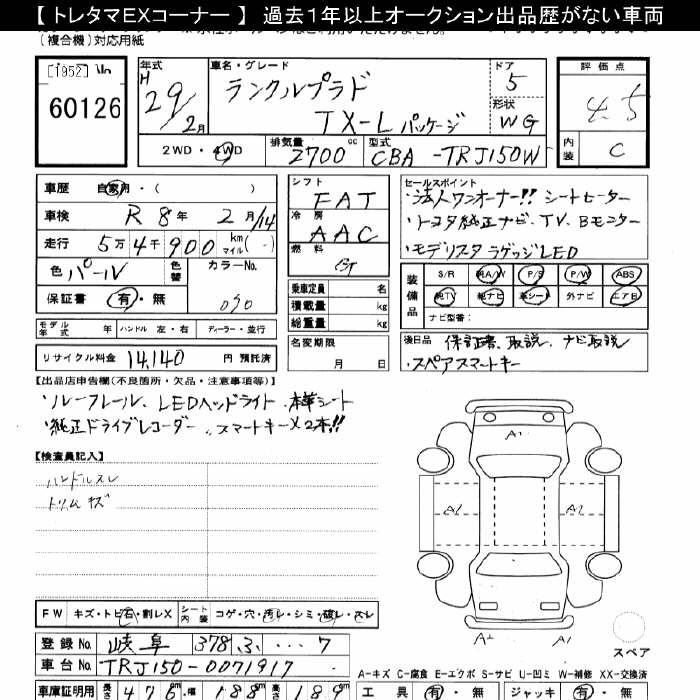 【 トレタマEXコーナー 】 過去１年以上オークション出品歴がない車両
(複合機)対応用紙
[1952] No
60126
年式
H
29/2月
車名・グレード
ランクルプラド
TX-L パッケージ
ドア
5
形状
WG
評価点
4.5
内装
C
2WD・4WD
排気量
2700cc
型式
CBA -TRJ150W
車歴 自家用・( )
車検 R 8年 2月/14
走行 5万4千900 km マイル (-)
色 パール 色替 カラーNo. 070
保証書 有・無
モデル年式 年 ハンドル 左・右 ディーラー・並行
リサイクル料金 14,140 円 預託済
シフト
FAT
冷房
AAC
燃料
乗車定員 名
積載量 kg
総重量 kg
名変期限
月 日
セールスポイント
・法人ワンオーナー!! シートヒーター
・トヨタ純正ナビ、TV、Bモニター
・モデリスタ ラゲッジLED
装備品
S/R 純A/W P/S P/W ABS
純TV 純ナビ 革シート 外ナビ エアB
ナビ型番：
後日品 保証書、取説、ナビ取説
・スペアスマートキー
【出品店申告欄(不良箇所・欠品・注意事項等)】
・ルーフレール、LEDヘッドライト、本革シート
・純正ドライブレコーダー、スマートキー×2本!!
【検査員記入】
ハンドルスレ
トリムキズ
A1
A1
A1
A2
A1
スペア
FW キズ・トビ石・割レX シート内装 コゲ・穴・汚レ・シミ・破レ・スレ
登録No. 岐阜 378 ふ ・・・7
車台No. TRJ150-0071917
A-キズ C-腐食 E-エクボ S-サビ U-凹ミ W-補修 XX-交換済
車庫証明用 長さ 476cm 幅 188cm 高さ 189cm
工具 有・無 ジャッキ 有・無